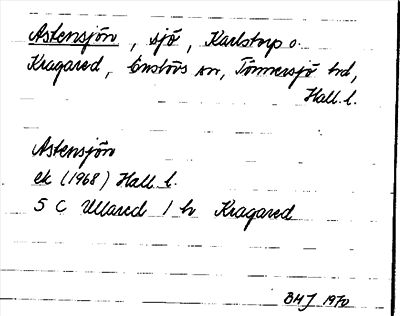 Astensjön, sjö, Karlstorp o.
Kragared, Enslövs sn, Tönnersjö hd,
Hall. l.
Astensjön
ek (1968) Hall. l.
5 C Ullared 1 h Kragared
BHJ 1970